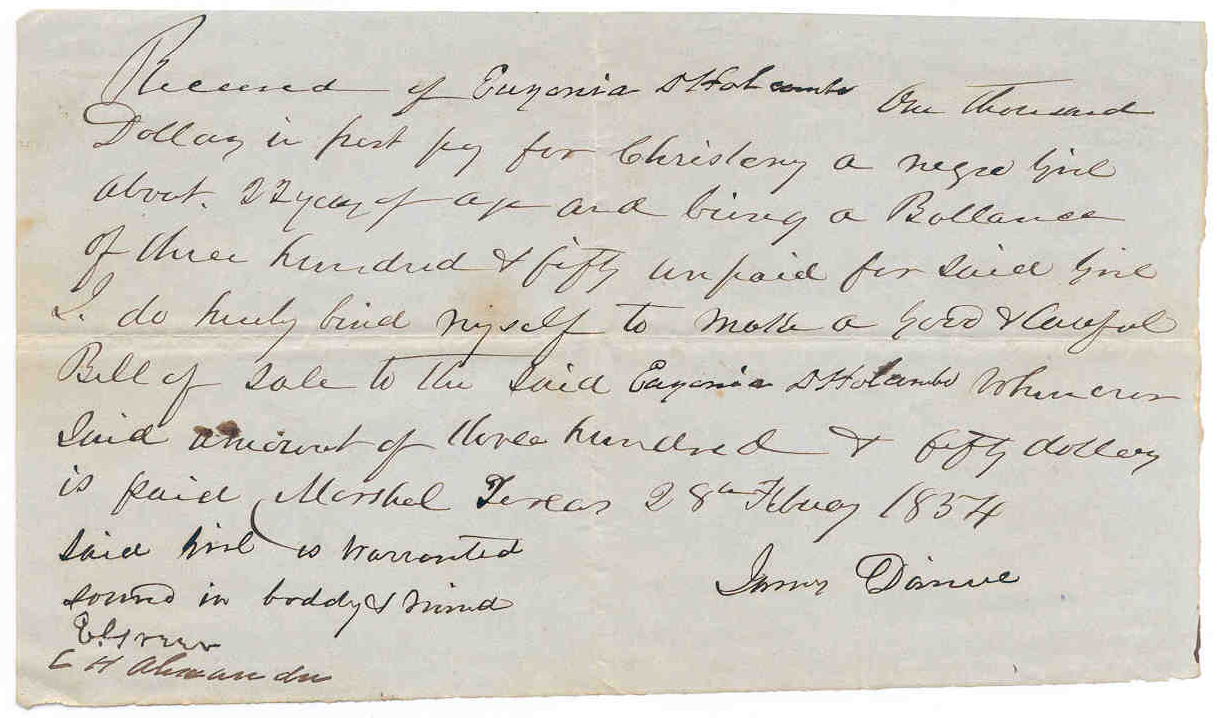 Received of Eugonia D Holcombe One thousand
Dollars in part pay for Christeny a negro Girl
about. 22 years of age and being a Ballance
of three hundred & fifty unpaid for said Girl
I. do hereby bind myself to make a good & lawful
Bill of Sale to the Said Eugonia D Holcombe Whenever
Said amount of three hundred & fifty dollars
is paid Marshel Texas 28th Febuary 1854
said Girl is warranted
sound in boddy & mind
James
E Greer
C H